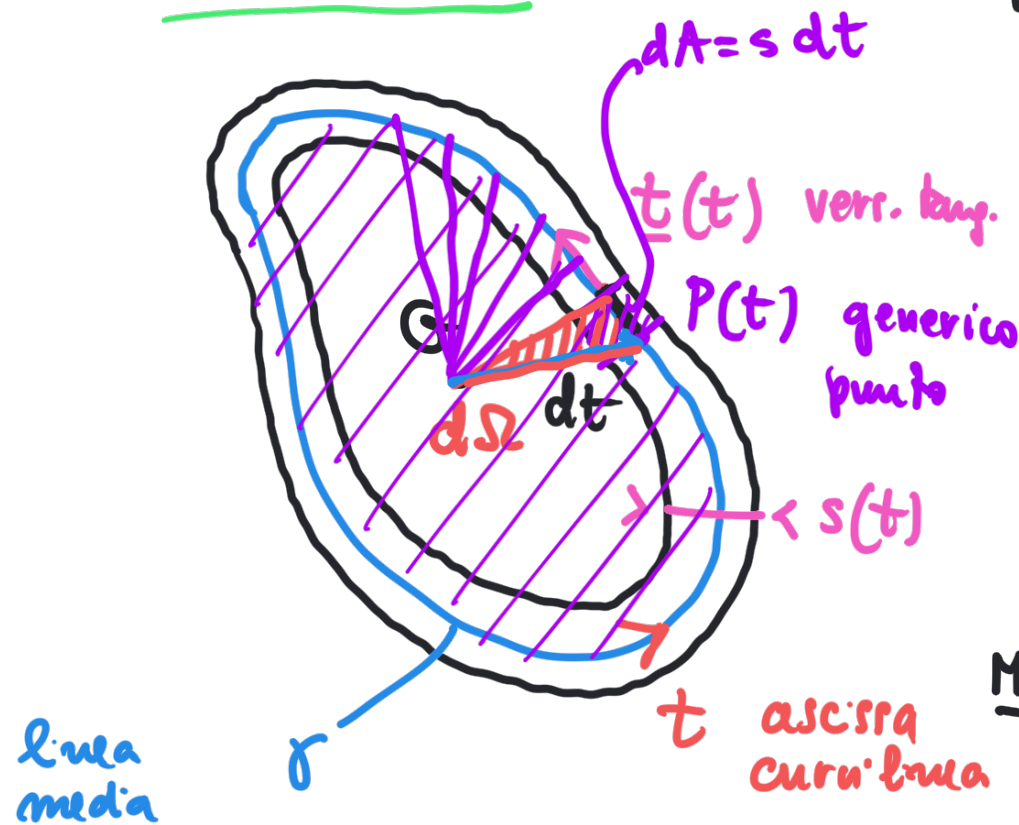 dA = s dt
t(t) vers. tang.
P(t) generico
punto
G
dt
dΩ
s(t)
M
t ascissa
curvilinea
linea
media
γ